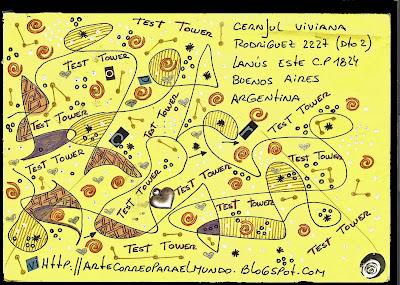 TEST TOWER
CERNJUL VIVIANA
RODRIGUEZ 2227 (Dto 2)
LANÚS ESTE C.P 1824
BUENOS AIRES
ARGENTINA
TEST TOWER
TEST TOWER
TEST TOWER
TEST TOWER
TEST TOWER
TEST TOWER
TEST TOWER
TEST TOWER
TEST TOWER
TEST TOWER
TEST TOWER
HTTP://ARTECORREOPARAELMUNDO.BLOGSPOT.COM